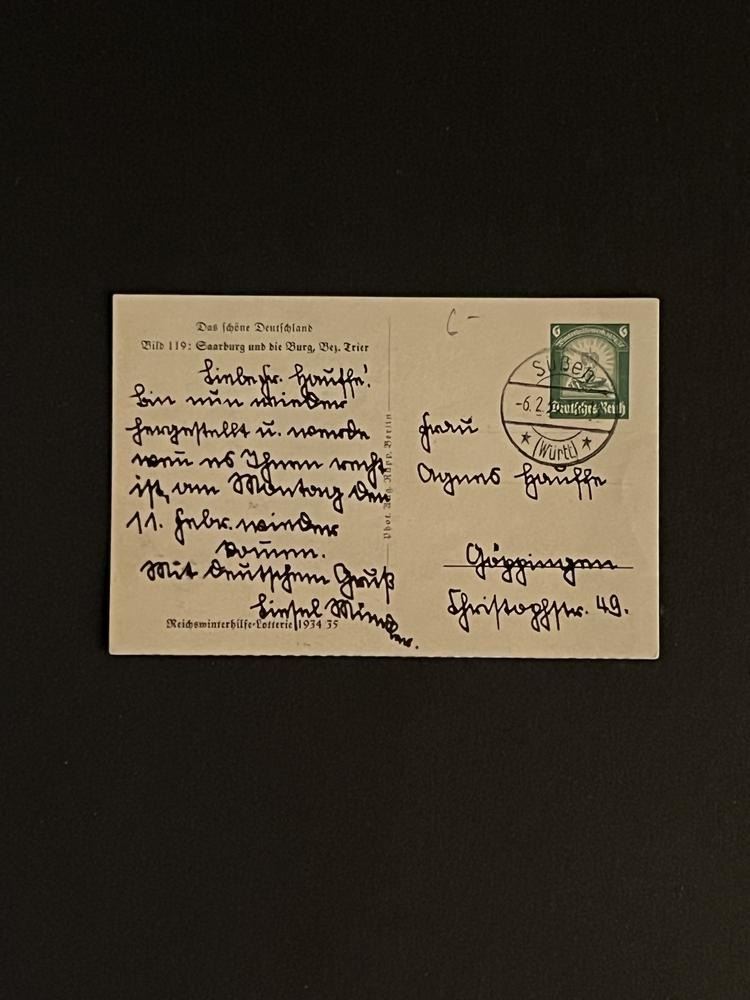 Das schöne Deutschland
Bild 119: Saarburg und die Burg, Bez. Trier
Liebe Fr. Hauffe!
Bin nun wieder
hergestellt u. werde
wen̄ es Ihnen recht
ist, am Montag den
11. Febr. wieder
kom̄en.
Mit deutschem Gruß
Liesel
Reichswinterhilfe-Lotterie 1934 35
Phot. Aug. Rupp, Berlin
6-
6 6
Deutsches Reich
Süßen
-6.2.
(Württ)
Frau
Agnes Hauffe
Göppingen
Christophstr. 49.